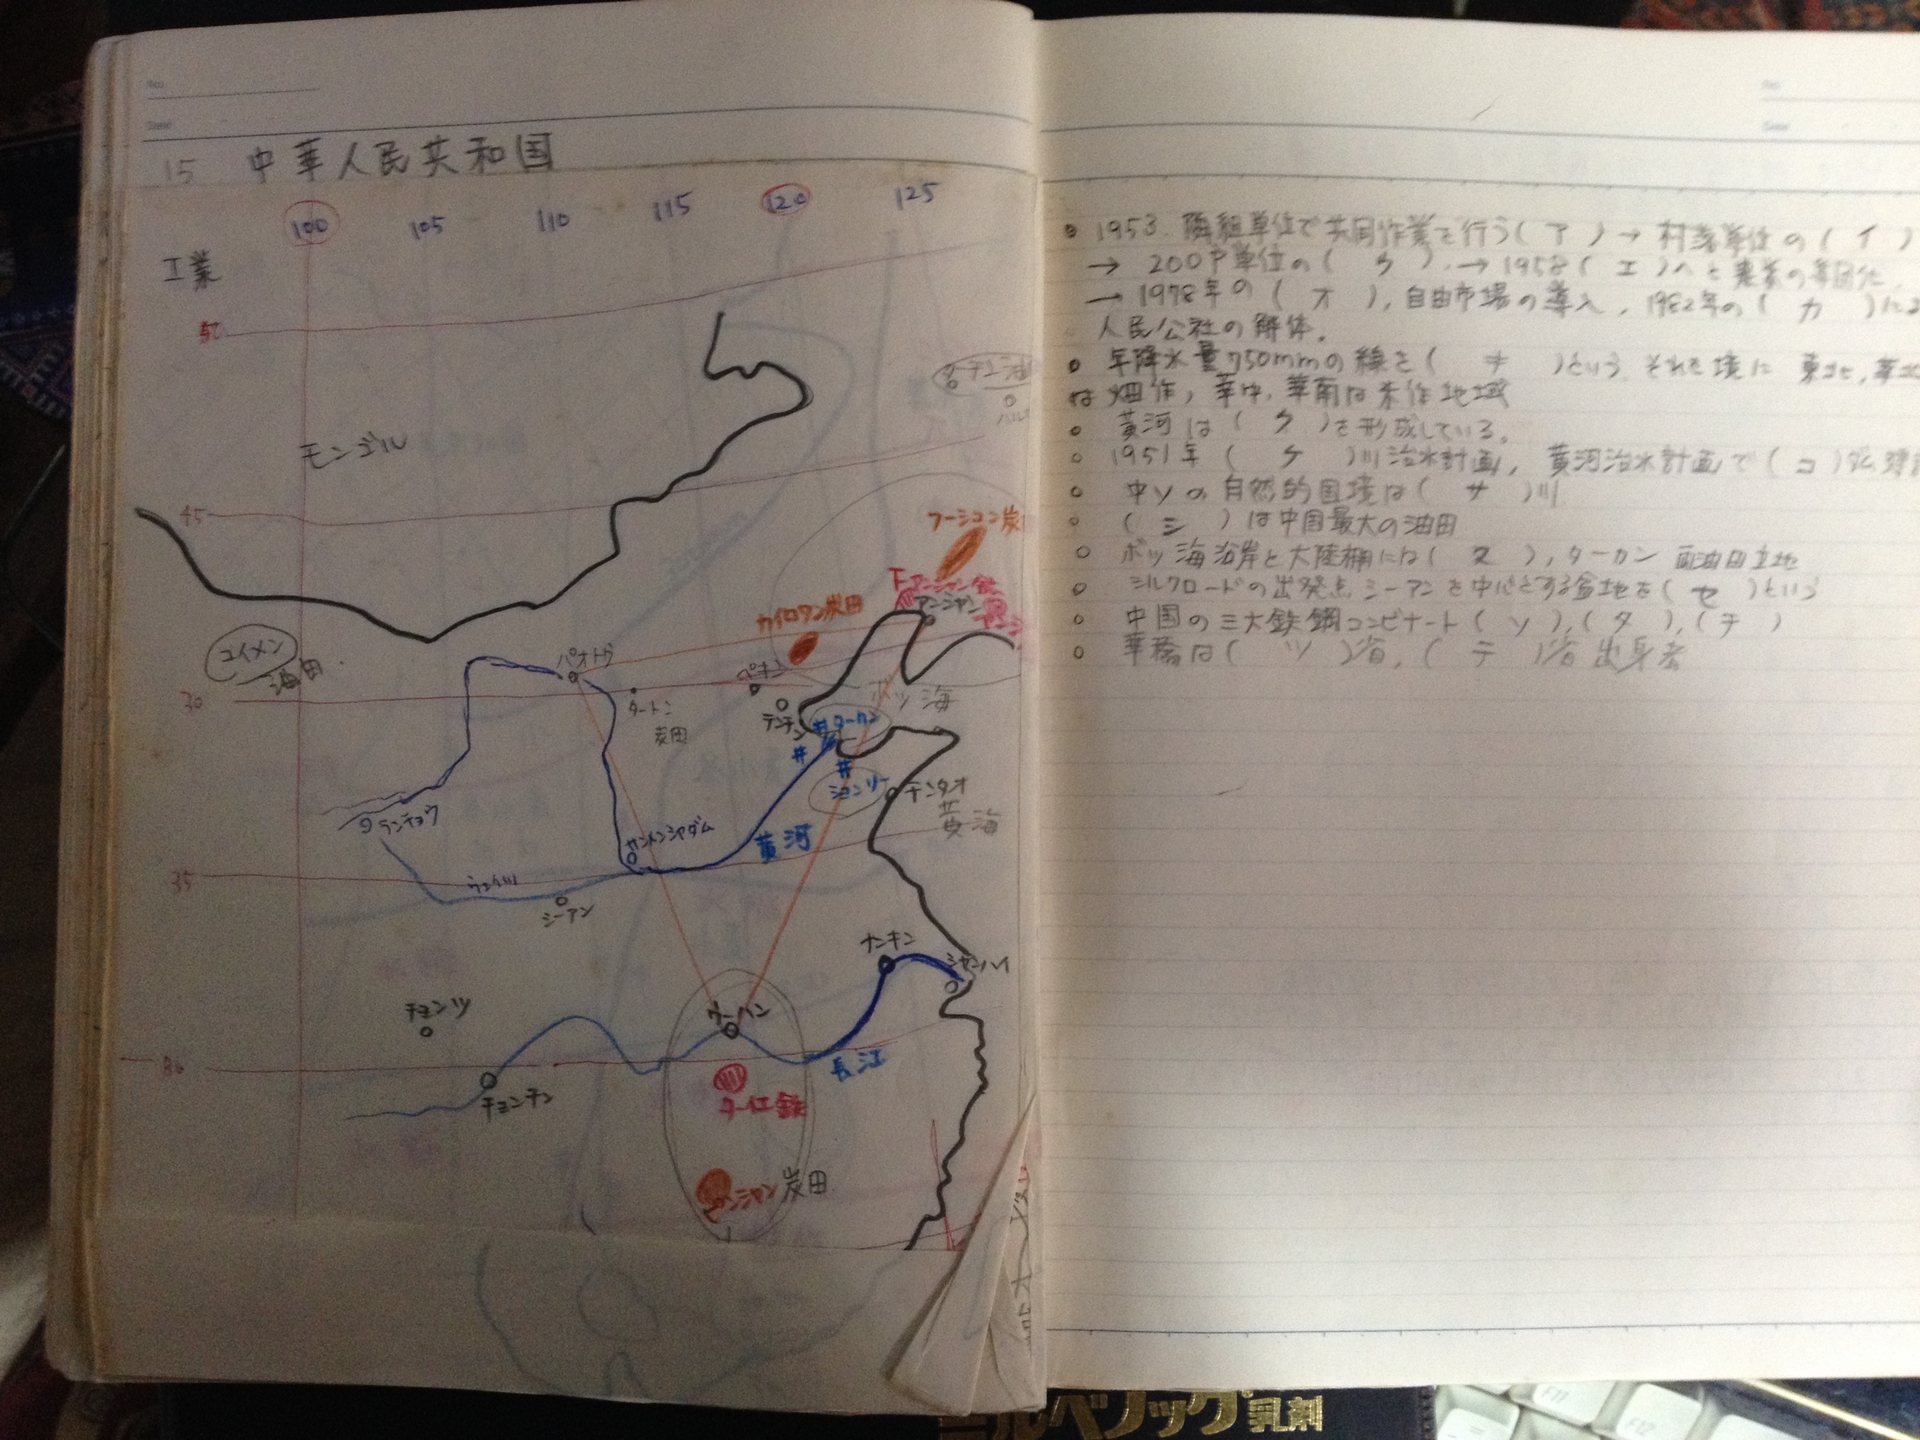 No.
Date
15 中華人民共和国
100 105 110 115 120 125
工業
50
モンゴル
ターチン油
45
フーシュン炭
アンシャン鉄
アンシャン
カイロワン炭田
ユイメン
油田
パオトウ
ペキン
30
タートン
炭田
テンチン
ボッ海
ターカン
ションリー
チンタオ
黄海
ランチョウ
サンメンシヤダム
黄河
35
シーアン
ナンキン
シャンハイ
チョンツ
ウーハン
30
長江
チョンチン
ターイエ鉄
炭田
No.
Date
1953 隣組単位で共同作業を行う( ア )→ 村落単位の( イ )
→ 200戸単位の( ウ ).→1958( エ )へと農業の集団化
→1978年の( オ ),自由市場の導入,1982年の( カ )によ
人民公社の解体.
年降水量750mmの線を( キ )という.それを境に 東北,華北
は畑作,華中,華南は米作地域
黄河は( ク )を形成している。
1951年( ケ )川治水計画,黄河治水計画で( コ )ダム建設
中ソの自然的国境は( サ )川
( シ )は中国最大の油田
ボッ海沿岸と大陸棚には( ス ),ターカン 油田立地
シルクロードの出発点シーアンを中心とする盆地を( セ )という
中国の三大鉄鋼コンビナート( ソ ),( タ ),( チ )
華橋は( ツ )省,( テ )省出身者
ルベノック乳剤
F11
F12